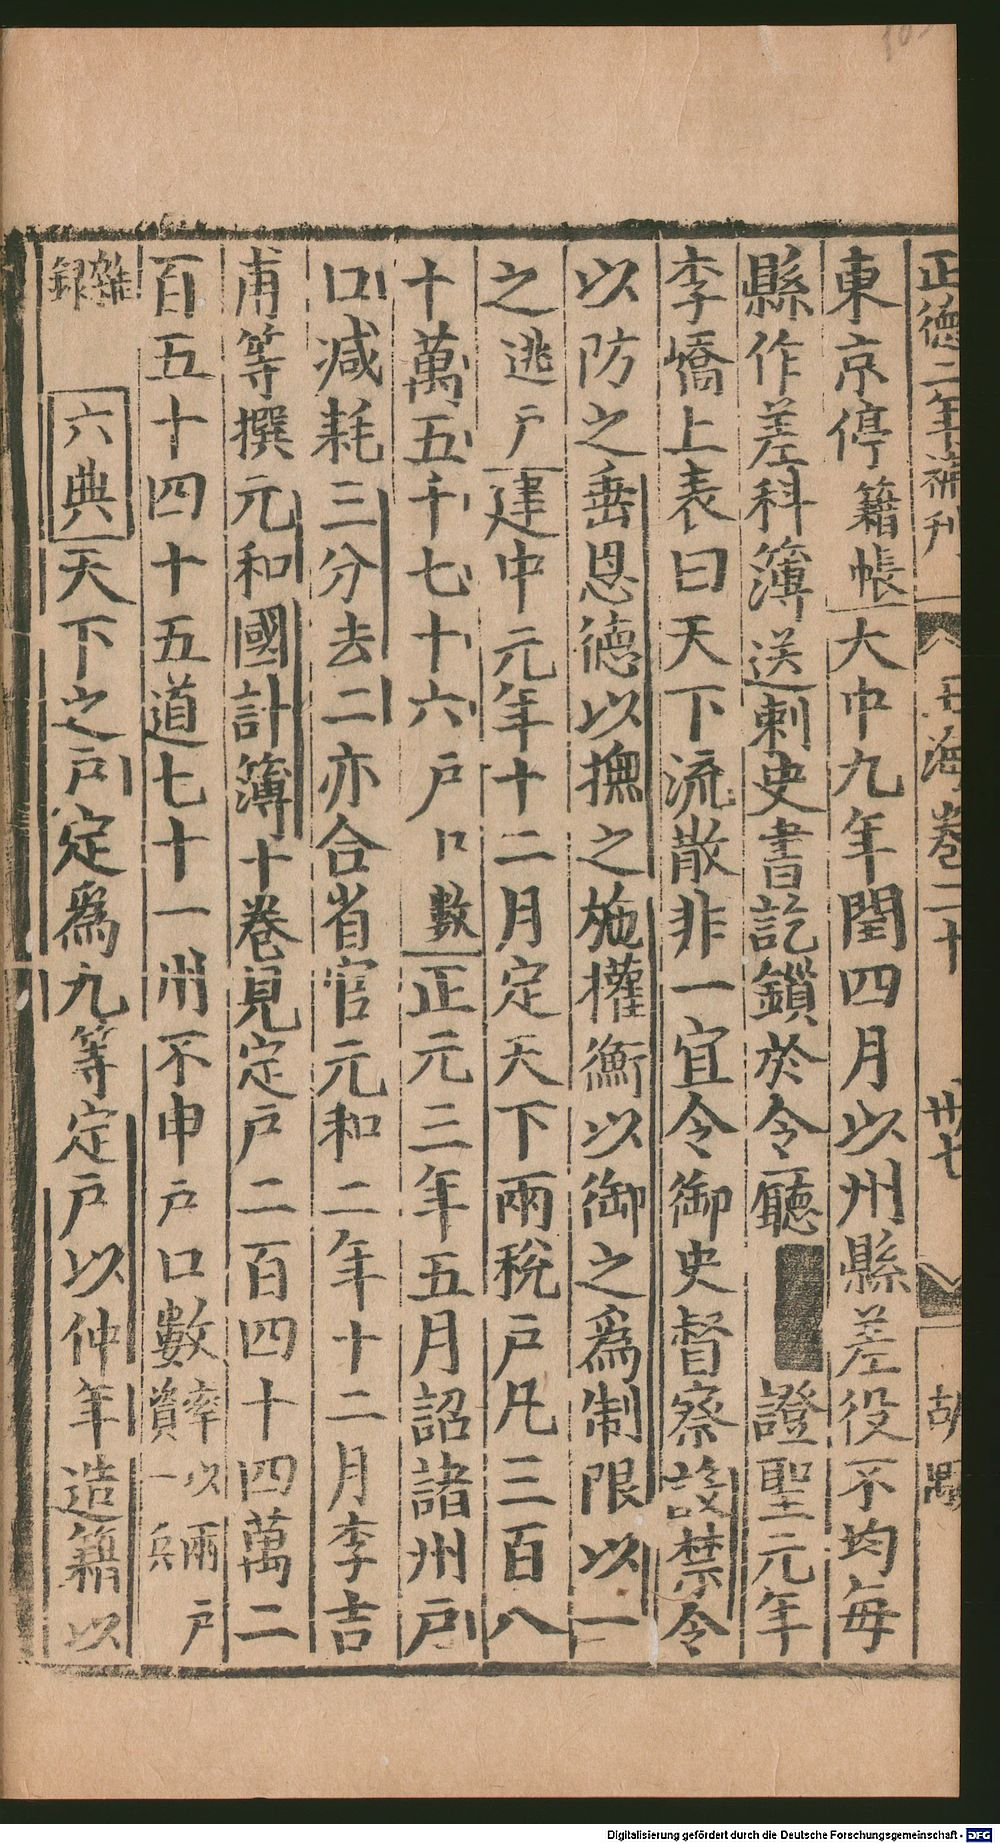 正德二年補刊 玉海卷二十 卅七 胡
東京停籍帳大中九年閏四月以州縣差役不均每
縣作差科簿送刺史書訖鏁於令廳 證聖元年
李嶠上表曰天下流散非一宜令御史督察設禁令
以防之垂恩德以撫之施權衡以御之爲制限以一
之逃戶建中元年十二月定天下兩稅戶凡三百八
十萬五千七十六戶口數正元三年五月詔諸州戶
口減耗三分去二亦合省官元和二年十二月李吉
甫等撰元和國計簿十卷見定戶二百四十四萬二
百五十四十五道七十一州不申戶口數率以兩戶資一兵
雜録 六典天下之戶定爲九等定戶以仲年造籍以
Digitalisierung gefördert durch die Deutsche Forschungsgemeinschaft - DFG